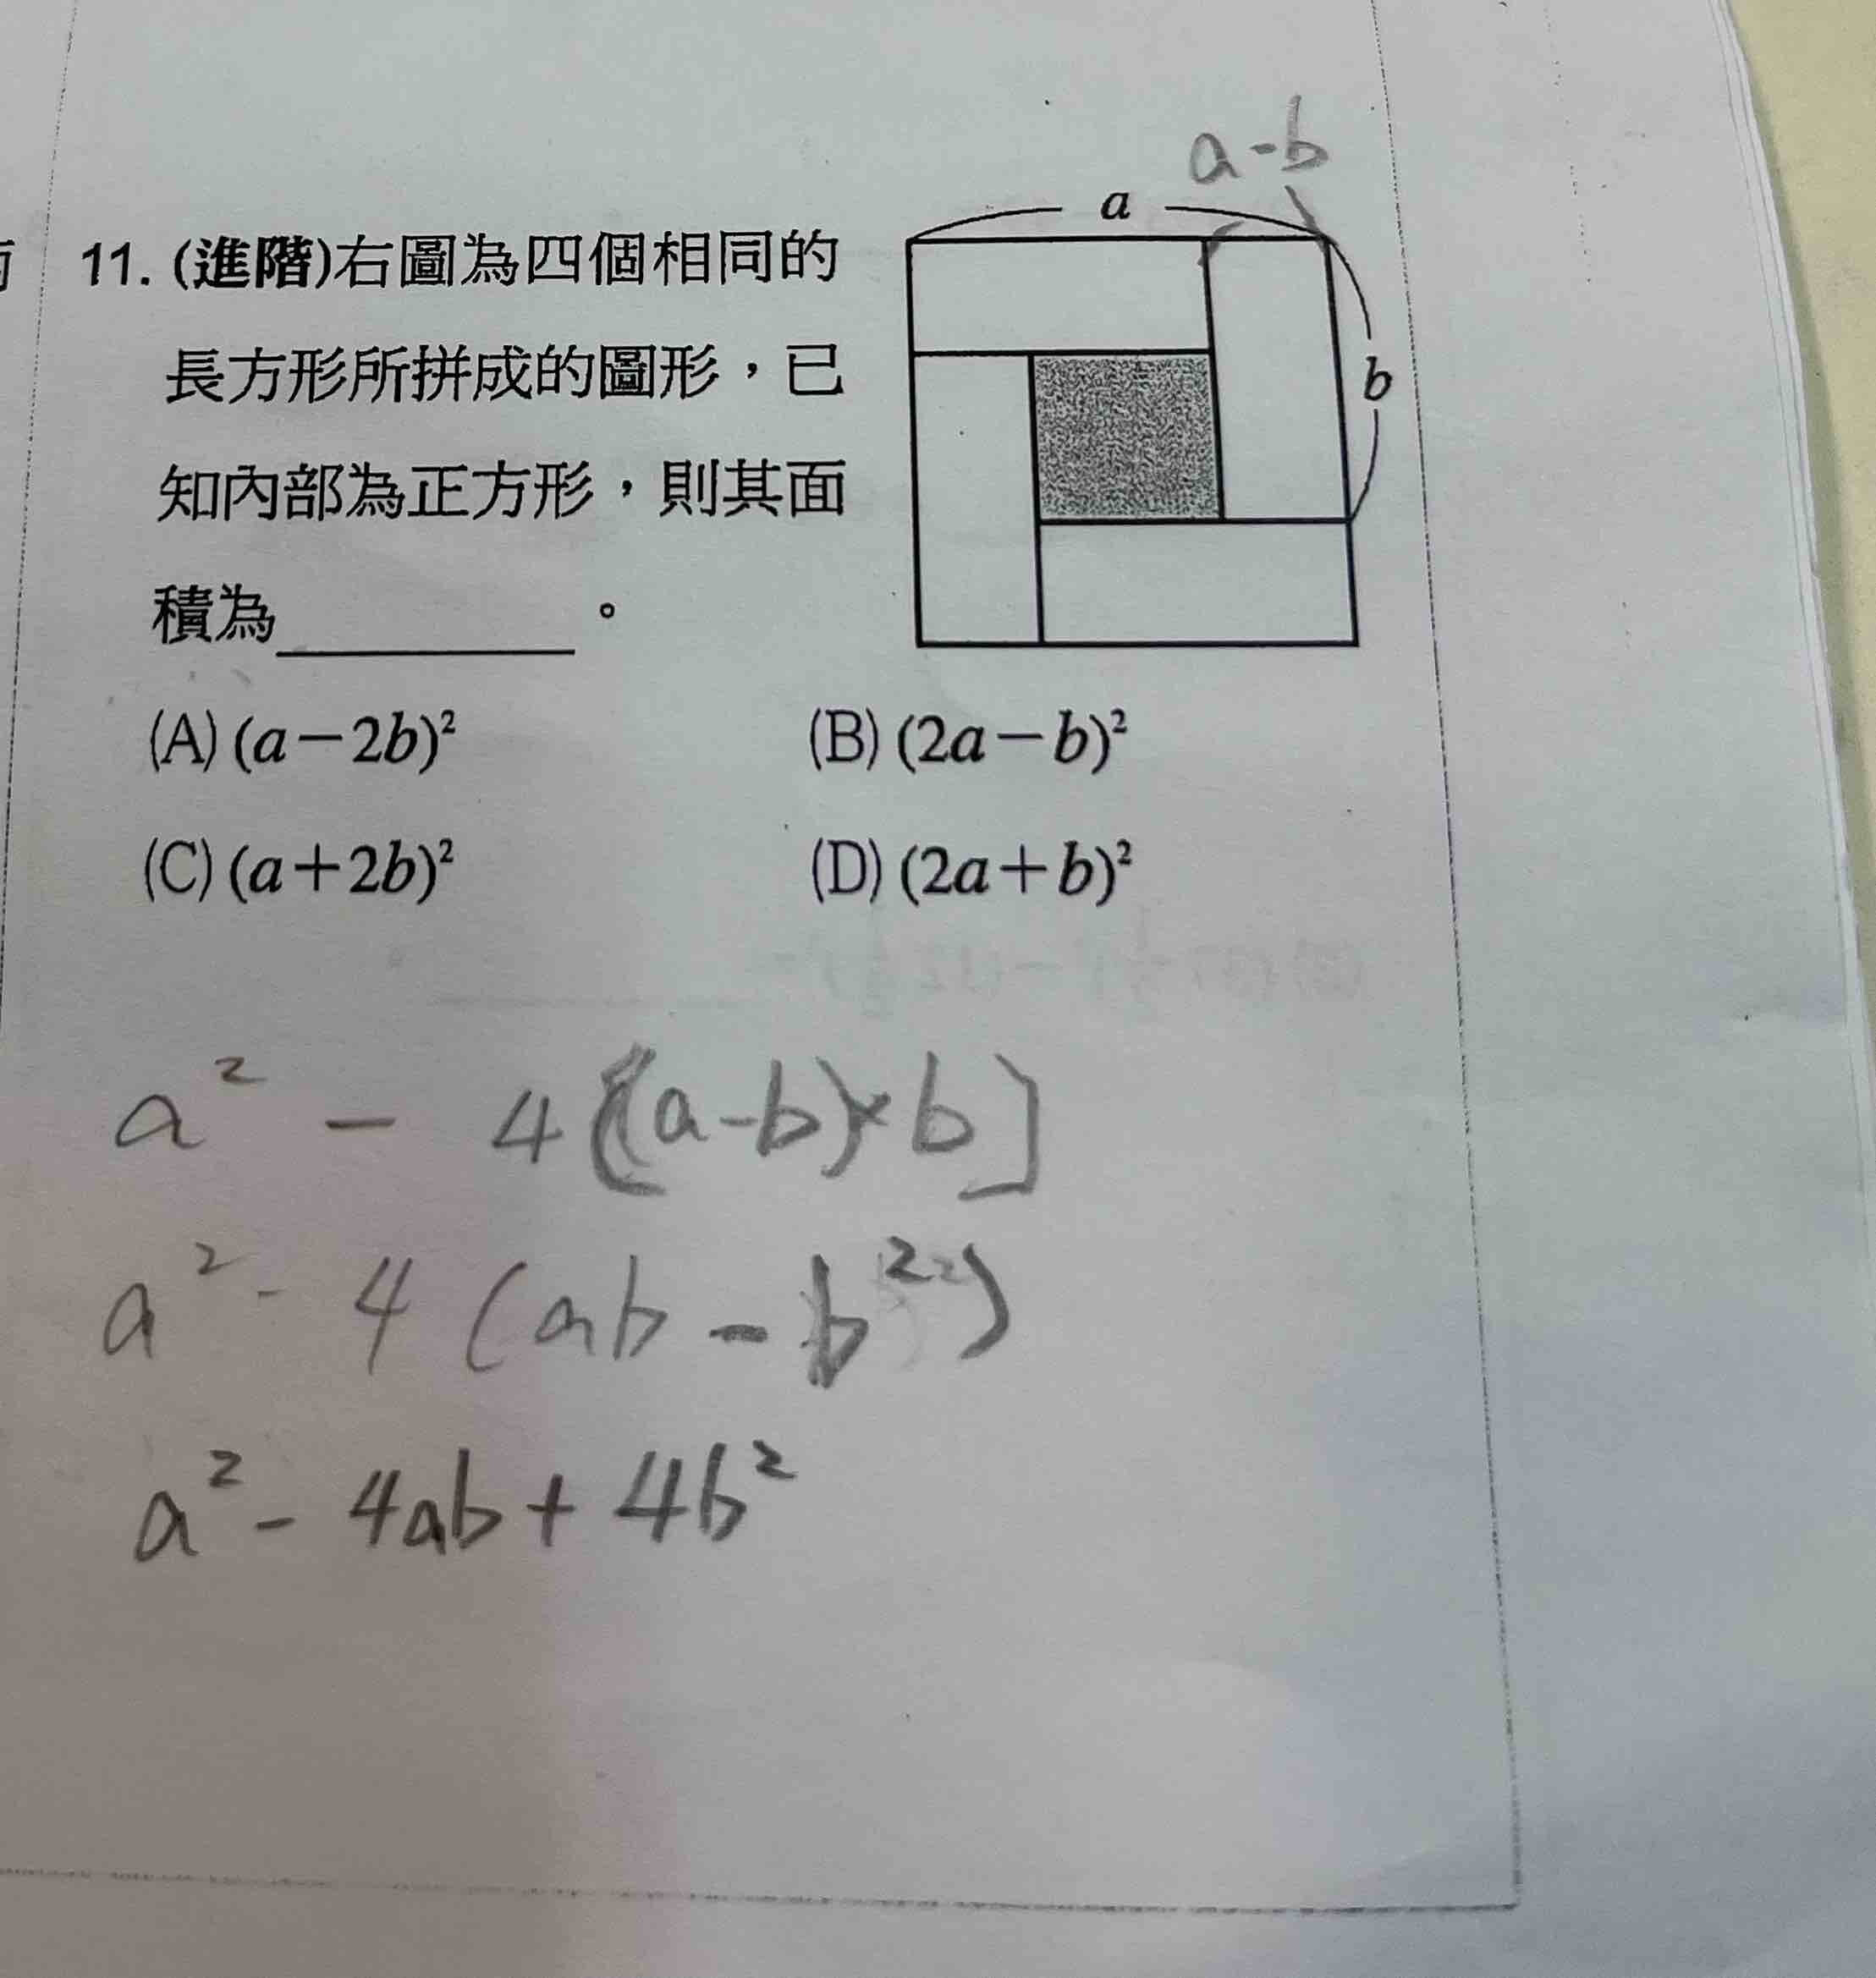 a-b
a
b
11. (進階)右圖為四個相同的
長方形所拼成的圖形，已
知內部為正方形，則其面
積為＿＿＿＿＿。
(A) (a－2b)²
(B) (2a－b)²
(C) (a＋2b)²
(D) (2a＋b)²
a² - 4[(a-b)×b]
a² - 4(ab-b²)
a² - 4ab + 4b²